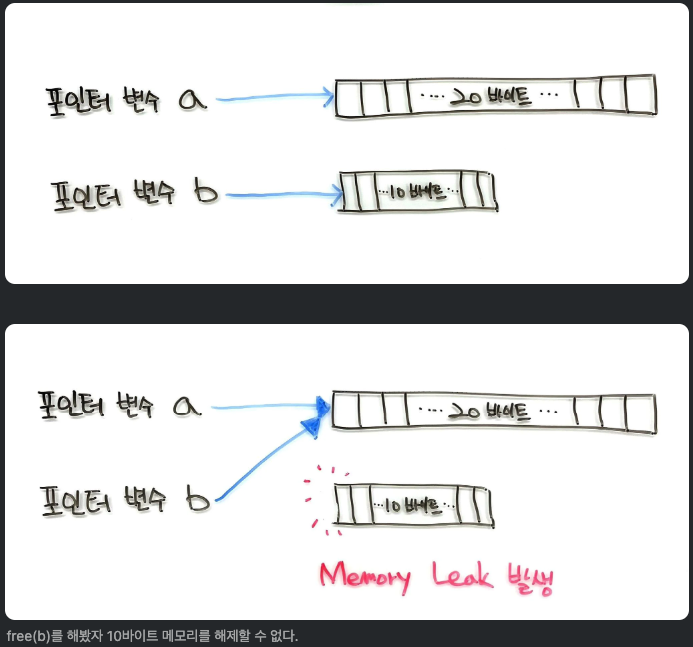 포인터 변수 a
···· 20 바이트 ···
포인터 변수 b
···10 바이트···
포인터 변수 a
···· 20 바이트 ···
포인터 변수 b
···10 바이트···
Memory Leak 발생
free(b)를 해봤자 10바이트 메모리를 해제할 수 없다.